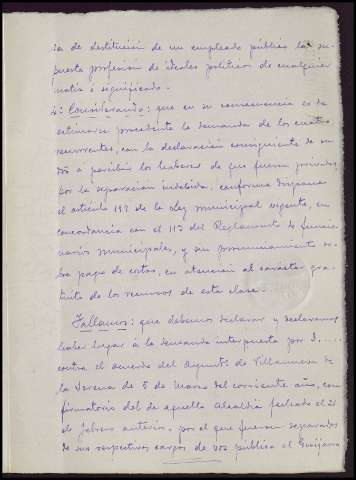 ia de destitución de un empleado público la su-
puesta profesión de ideales políticos de cualquier
matiz o significado.
4º Considerando: que en su consecuencia es de
estimarse procedente la demanda de los cuatro
recurrentes, con la declaración consiguiente de su
dro a percibir los haberes de que fueron privados
por la separación indebida, conforme dispone
el artículo 192 de la Ley Municipal vigente, en
concordancia con el 11º del Reglamento de funcio-
narios municipales, y sin pronunciamiento so-
bre pago de costas, en atención al carácter gra-
tuito de los recursos de esta clase.
Fallamos: que debemos declarar y declaramos
haber lugar a la demanda interpuesta por D.....
contra el acuerdo del Ayuntº de Villanueva de
la Serena de 5 de Marzo del corriente año, con-
firmatorio del de aquella Alcaldía fechado el 21
de febrero anterior, por el que fueron separados
de sus respectivos cargos de voz pública el Guijarro